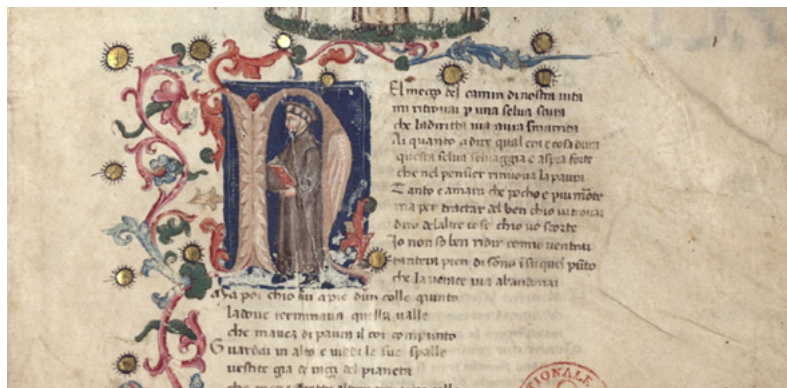 N
El meço del camin di nostra uita
mi ritrouai p una selua scura
che ladiritta uia auia smarrita
Ai quanto adire qual era e cosa dura
questa selua seluaggia e aspra forte
che nel pensier rinuoua la pauri
Tanto e amara che pocho e piu morte
ma per tractar del ben chio ui trouai
diro delaltre cose chio uo scorte
Io non so ben ridir comio uentrai
tantera pien di sono i su quel puto
che la uerace uia abandonai
Ma poi chio fui apie dun colle giunto
ladoue terminaua quella ualle
che mauea di paura il cor compunto
Guardai in alto e uiddi le sue spalle
uestite gia de raggi del pianeta
TIONALE